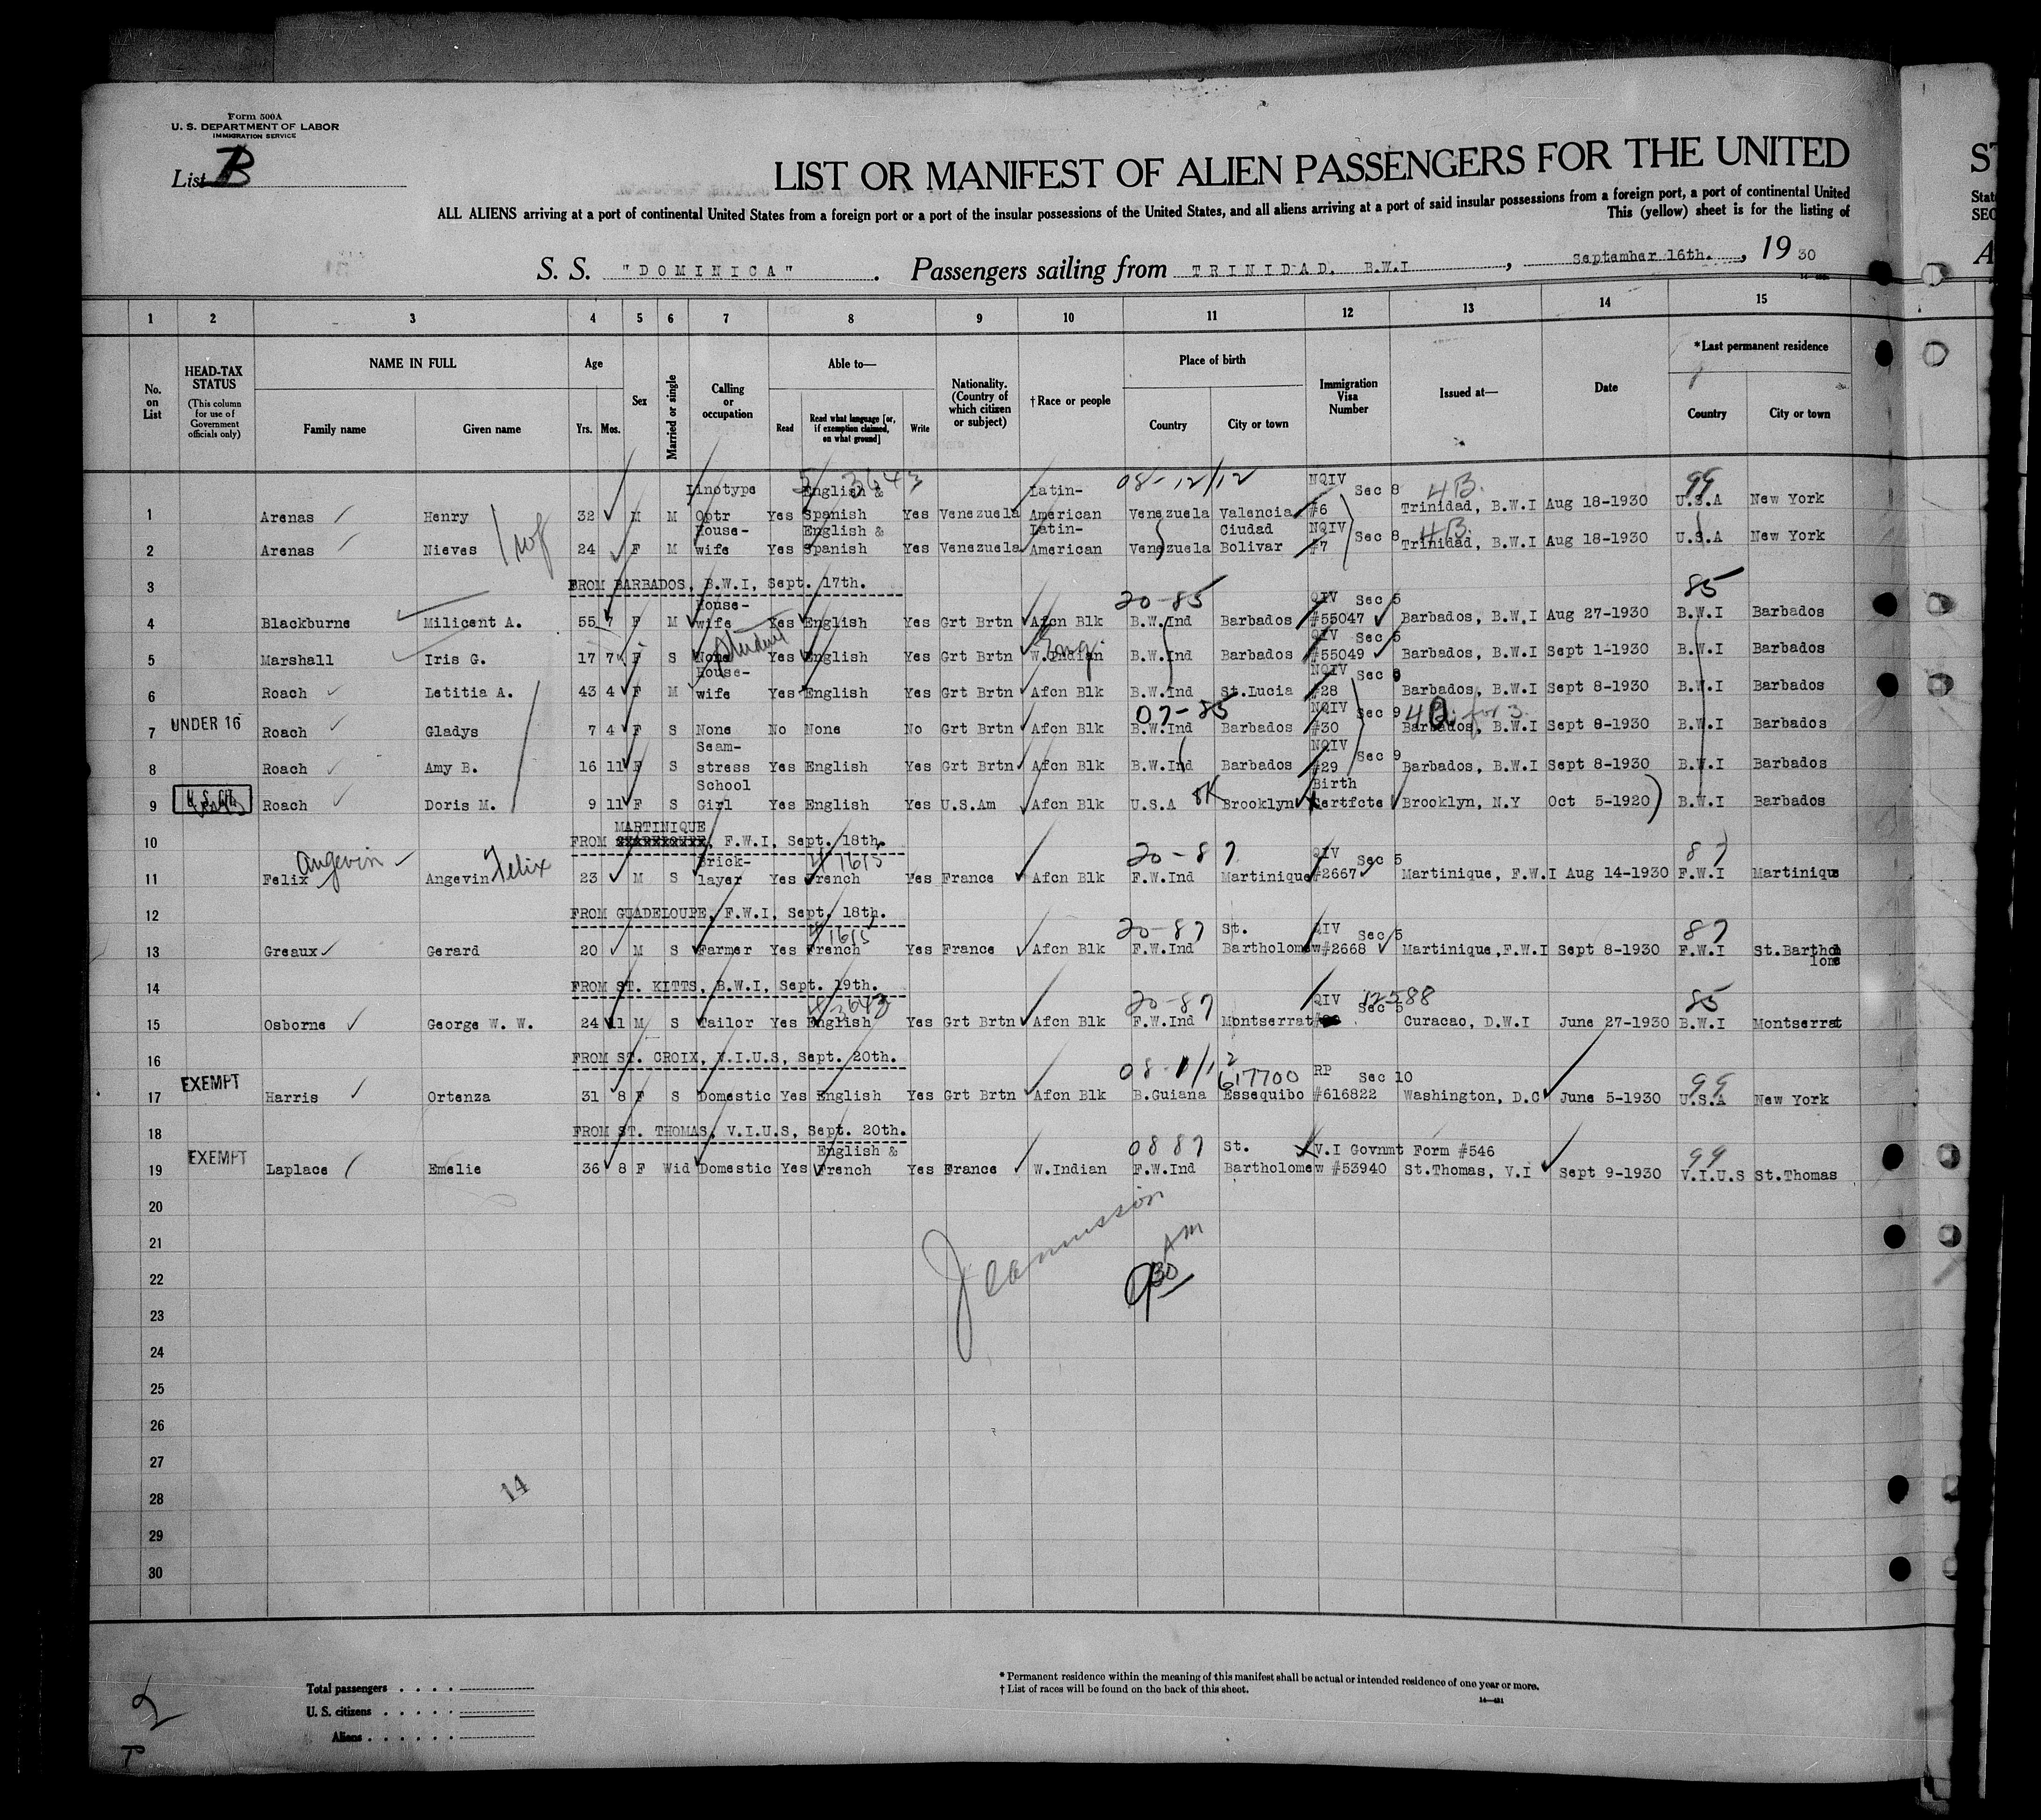 Form 500A
U. S. DEPARTMENT OF LABOR
IMMIGRATION SERVICE
List B
LIST OR MANIFEST OF ALIEN PASSENGERS FOR THE UNITED
ALL ALIENS arriving at a port of continental United States from a foreign port or a port of the insular possessions of the United States, and all aliens arriving at a port of said insular possessions from a foreign port, a port of continental United
This (yellow) sheet is for the listing of
S. S. "DOMINICA" . Passengers sailing from TRINIDAD, B.W.I , September 16th. , 19 30
1 2 3 4 5 6 7 8 9 10 11 12 13 14 15
No. on List
HEAD-TAX STATUS (This column for use of Government officials only)
NAME IN FULL
Family name Given name
Age
Yrs. Mos.
Sex
Married or single
Calling or occupation
Able to—
Read Read what language [or, if exemption claimed, on what ground] Write
Nationality. (Country of which citizen or subject)
† Race or people
Place of birth
Country City or town
Immigration Visa Number
Issued at—
Date
*Last permanent residence
Country City or town
Linotype 5 3643 English & Latin- 08-12/12 NQIV Sec 8 4B. 99
1 Arenas Henry 32 M M Optr Yes Spanish Yes Venezuela American Venezuela Valencia #6 Trinidad, B.W.I Aug 18-1930 U.S.A New York
House- English & Latin- Ciudad NQIV Sec 8 4B.
2 Arenas Nieves 24 F M wife Yes Spanish Yes Venezuela American Venezuela Bolivar #7 Trinidad, B.W.I Aug 18-1930 U.S.A New York
3 FROM BARBADOS, B.W.I, Sept. 17th. 85
House- 20-85 QIV Sec 5
4 Blackburne Milicent A. 55 7 F M wife Yes English Yes Grt Brtn Afcn Blk B.W.Ind Barbados #55047 Barbados, B.W.I Aug 27-1930 B.W.I Barbados
Student QIV Sec 5
5 Marshall Iris G. 17 7 F S None Yes English Yes Grt Brtn W.Indian B.W.Ind Barbados #55049 Barbados, B.W.I Sept 1-1930 B.W.I Barbados
House- NQIV Sec 8
6 Roach Letitia A. 43 4 F M wife Yes English Yes Grt Brtn Afcn Blk B.W.Ind St.Lucia #28 Barbados, B.W.I Sept 8-1930 B.W.I Barbados
UNDER 16 07-85 NQIV Sec 9 for 3
7 Roach Gladys 7 4 F S None No None No Grt Brtn Afcn Blk B.W.Ind Barbados #30 Barbados, B.W.I Sept 8-1930 B.W.I Barbados
Seam- NQIV Sec 9
8 Roach Amy B. 16 11 F S stress Yes English Yes Grt Brtn Afcn Blk B.W.Ind Barbados #29 Barbados, B.W.I Sept 8-1930 B.W.I Barbados
School Birth
9 Roach Doris M. 9 11 F S Girl Yes English Yes U.S.Am Afcn Blk U.S.A Brooklyn Certfcte Brooklyn, N.Y Oct 5-1920 B.W.I Barbados
MARTINIQUE
10 FROM F.W.I, Sept. 18th.
Angevin Felix Brick- 1615 20-87 QIV Sec 5 87
11 Felix Angevin 23 M S layer Yes French Yes France Afcn Blk F.W.Ind Martinique #2667 Martinique, F.W.I Aug 14-1930 F.W.I Martinique
12 FROM GUADELOUPE, F.W.I, Sept. 18th.
1615 20-87 St. QIV Sec 5 87
13 Greaux Gerard 20 M S Farmer Yes French Yes France Afcn Blk F.W.Ind Bartholomew #2668 Martinique,F.W.I Sept 8-1930 F.W.I St.Bartho
lome
14 FROM ST. KITTS, B.W.I, Sept. 19th.
20-87 QIV Sec 5 12588 85
15 Osborne George W. W. 24 11 M S Tailor Yes English Yes Grt Brtn Afcn Blk F.W.Ind Montserrat Curacao, D.W.I June 27-1930 B.W.I Montserrat
16 FROM ST. CROIX, V.I.U.S, Sept. 20th.
EXEMPT 617700 RP Sec 10 99
17 Harris Ortenza 31 8 F S Domestic Yes English Yes Grt Brtn Afcn Blk B.Guiana Essequibo #616822 Washington, D.C June 5-1930 U.S.A New York
18 FROM ST. THOMAS, V.I.U.S, Sept. 20th.
EXEMPT English & 0887 St. V.I Govnmt Form #546 99
19 Laplace Emelie 36 8 F Wid Domestic Yes French Yes France W.Indian F.W.Ind Bartholomew #53940 St.Thomas, V.I Sept 9-1930 V.I.U.S St.Thomas
20
21
22
9 30 AM
23
24
25
26
27
28
14
29
30
Total passengers
U. S. citizens
Aliens
* Permanent residence within the meaning of this manifest shall be actual or intended residence of one year or more.
† List of races will be found on the back of this sheet.
2